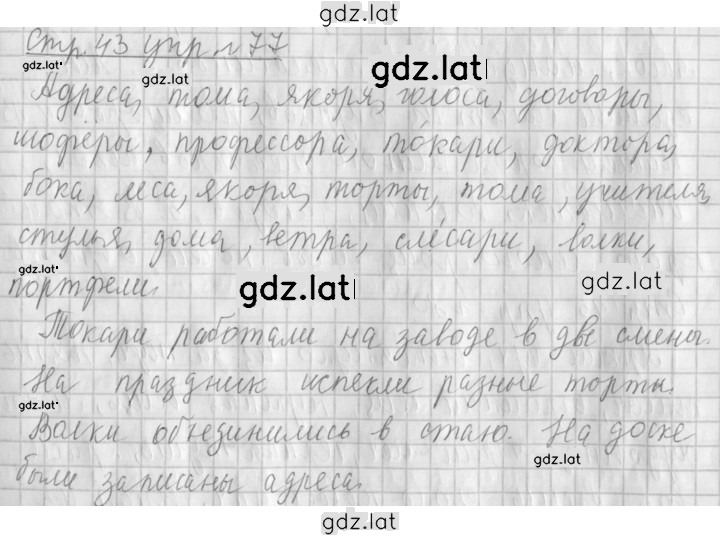 gdz.lat
Стр. 43 упр. № 77
gdz.lat
gdz.lat
gdz.lat
Адреса, тома, якоря, голоса, договоры,
шофёры, профессора, то́кари, доктора,
бока, леса, якоря, торты, тома, учителя,
стулья, дома, ветра, сле́сари, волки,
gdz.lat
gdz.lat
gdz.lat
портфели.
Токари работали на заводе в две смены.
На праздник испекли разные торты.
gdz.lat
Волки объединились в стаю. На доске
gdz.lat
были записаны адреса.
gdz.lat